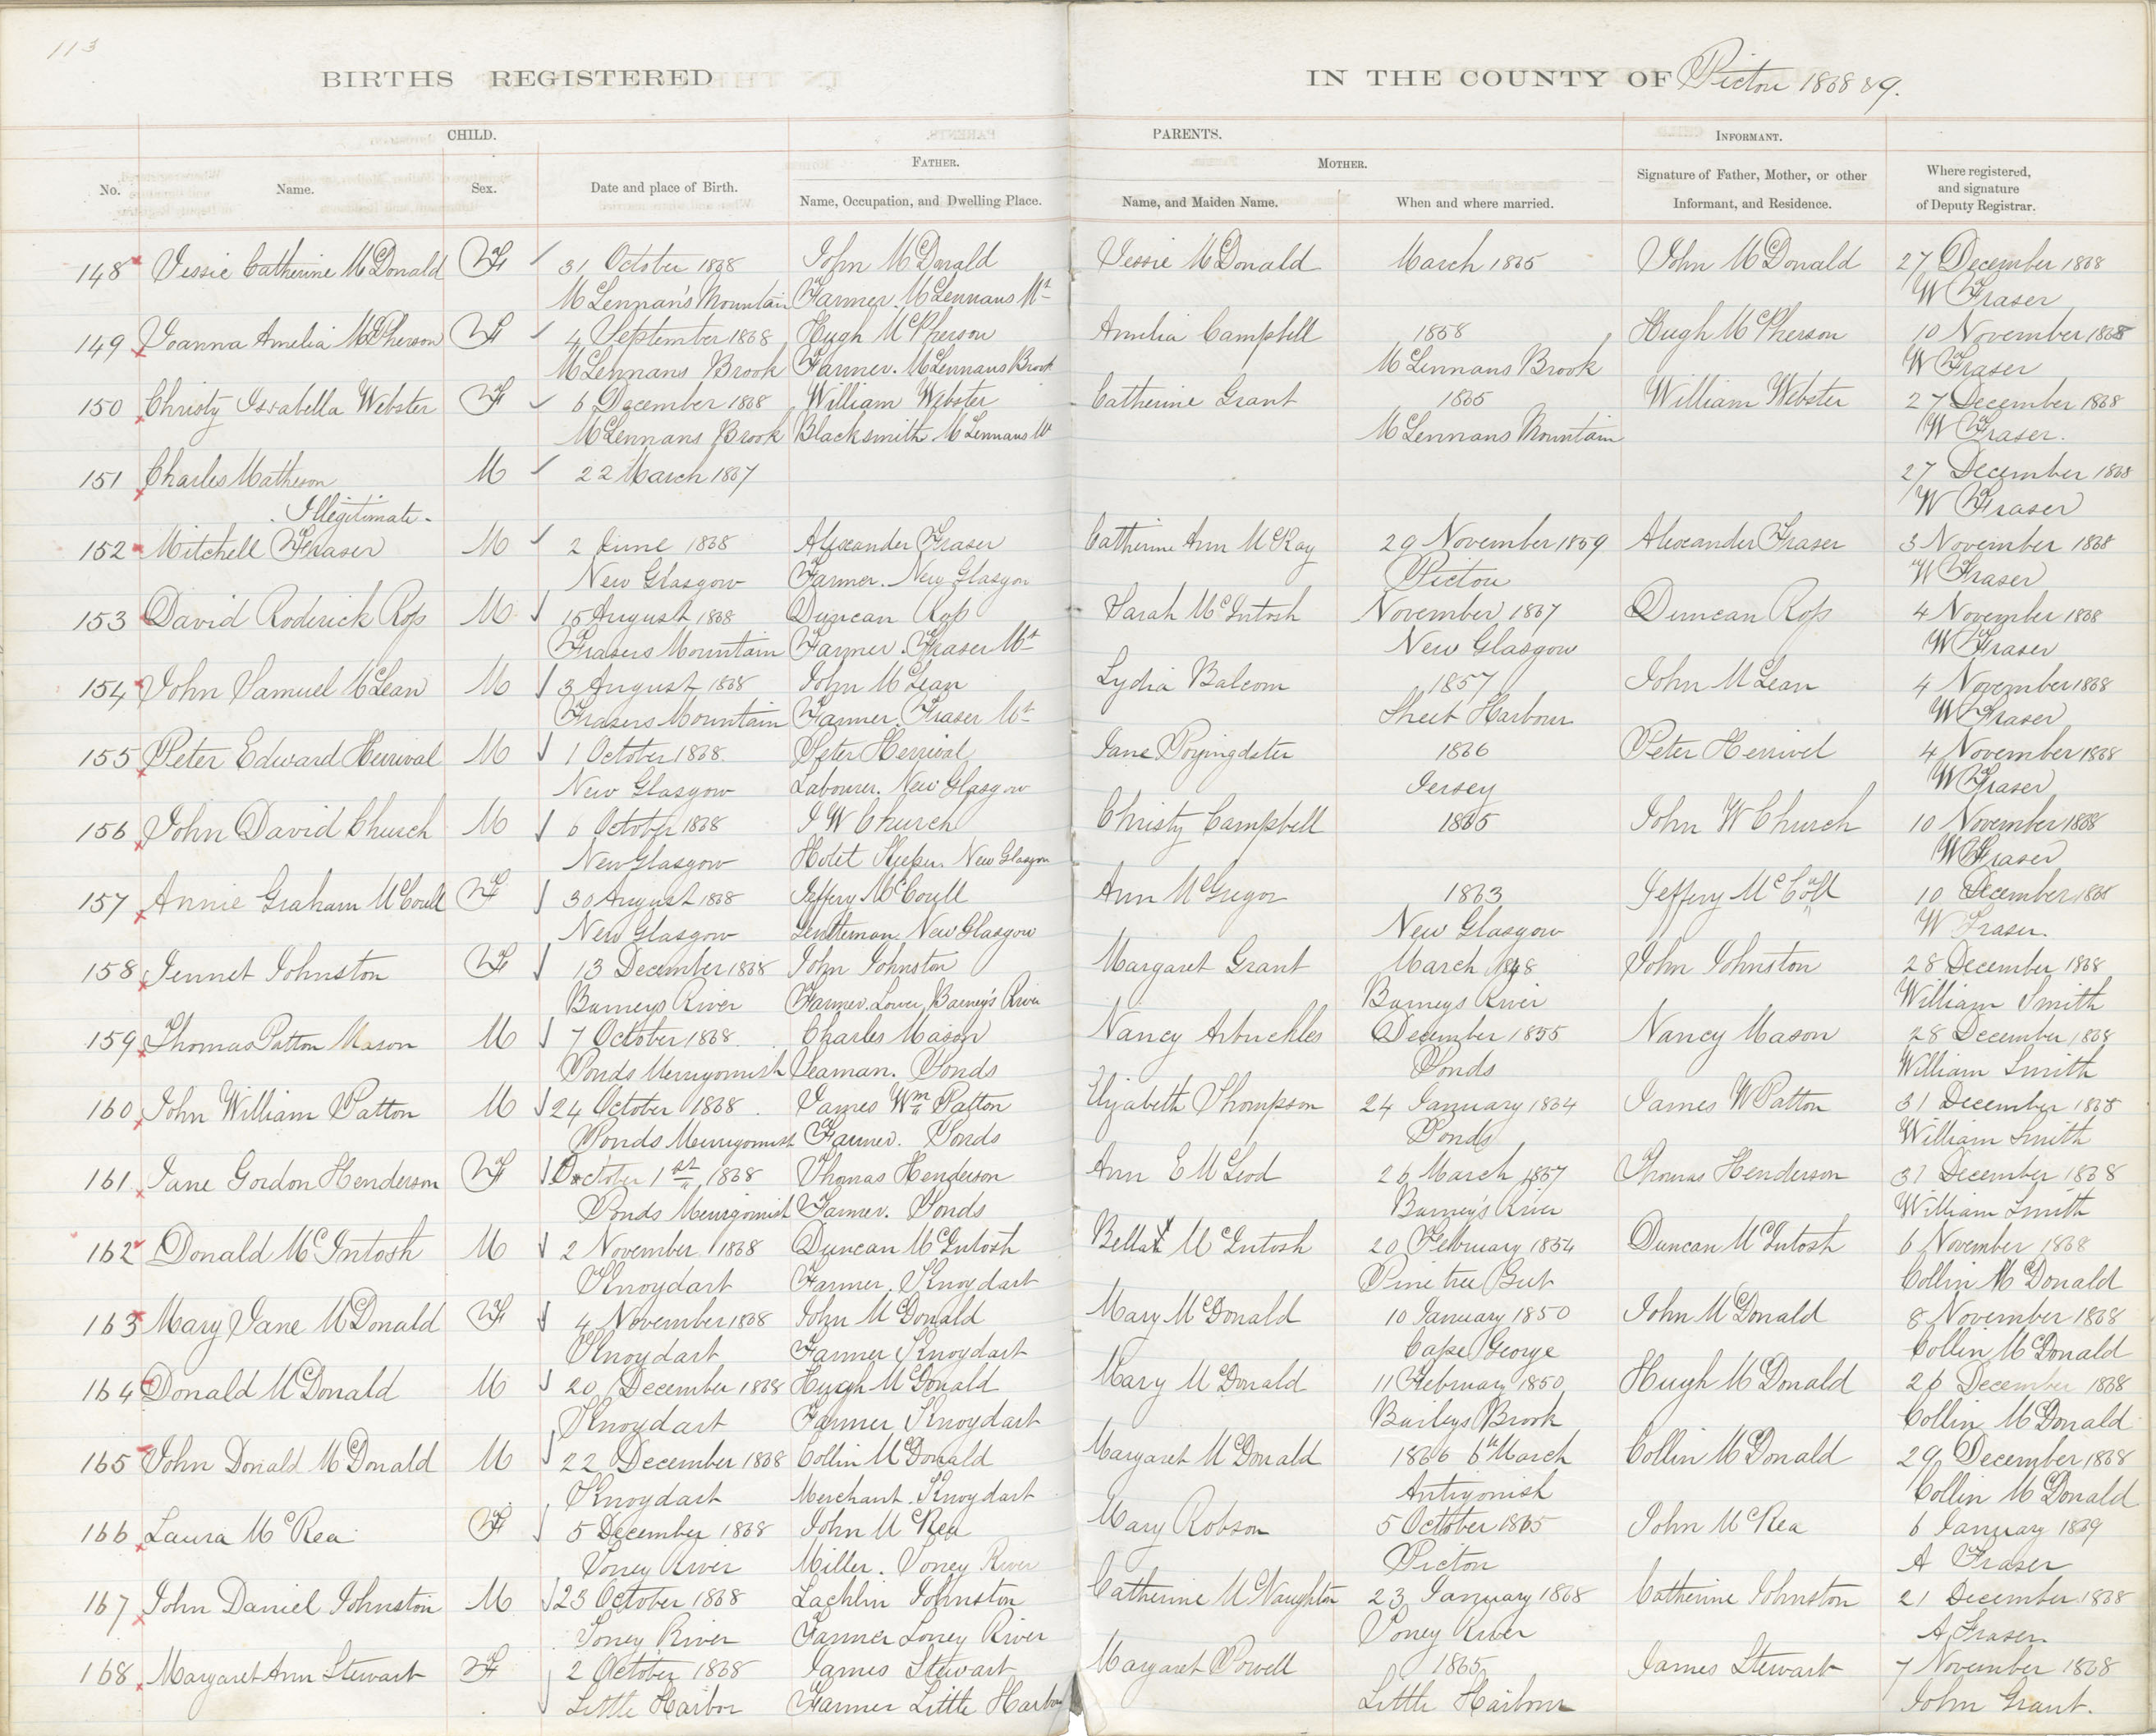 113
BIRTHS REGISTERED IN THE COUNTY OF Pictou 1868 & 9.
CHILD. PARENTS. INFORMANT.
FATHER. MOTHER.
No. Name. Sex. Date and place of Birth. Name, Occupation, and Dwelling Place. Name, and Maiden Name. When and where married. Signature of Father, Mother, or other Informant, and Residence. Where registered, and signature of Deputy Registrar.
148 Jessie Catherine McDonald F 31 October 1868 John McDonald Jessie McDonald March 1865 John McDonald 27 December 1868
McLennan's Mountain Farmer. McLennans Mt W Fraser
149 Joanna Amelia McPherson F 4 September 1868 Hugh McPherson Amelia Campbell 1858 Hugh McPherson 10 November 1868
McLennans Brook Farmer. McLennans Brook McLennans Brook W Fraser
150 Christy Isabella Webster F 6 December 1868 William Webster Catherine Grant 1865 William Webster 27 December 1868
McLennans Brook Blacksmith McLennans Mt McLennans Mountain W Fraser.
151 Charles Matheson M 22 March 1867 27 December 1868
Illegitimate. W Fraser
152 Mitchell Fraser M 2 June 1868 Alexander Fraser Catherine Ann McKay 29 November 1859 Alexander Fraser 3 November 1868
New Glasgow Farmer. New Glasgow Pictou W Fraser
153 David Roderick Ross M 15 August 1868 Duncan Ross Sarah McIntosh November 1867 Duncan Ross 4 November 1868
Frasers Mountain Farmer. Fraser Mt New Glasgow W Fraser
154 John Samuel McLean M 3 August 1868 John McLean Lydia Balcom 1857 John McLean 4 November 1868
Frasers Mountain Farmer. Fraser Mt Sheet Harbour W Fraser
155 Peter Edward Herrival M 1 October 1868. Peter Herrival Jane 1866 Peter Herrivel 4 November 1868
New Glasgow Labourer. New Glasgow Jersey W Fraser
156 John David Church M 6 October 1868 J W Church Christy Campbell 1865 John W Church 10 November 1868
New Glasgow Hotel Keeper. New Glasgow W Fraser
157 Annie Graham McCoull F 30 August 1868 Jeffery McCoull Ann McGregor 1863 Jeffery McColl 10 December 1868
New Glasgow Gentleman New Glasgow New Glasgow W Fraser.
158 Jennet Johnston F 13 December 1868 John Johnston Margaret Grant March 1848 John Johnston 28 December 1868
Barneys River Farmer. Lower Barney's River Barneys River William Smith
159 Thomas Patton Mason M 7 October 1868. Charles Mason Nancy Arbuckles December 1855 Nancy Mason 28 December 1868
Ponds Merrigomish Seaman. Ponds Ponds William Smith
160 John William Patton M 24 October 1868. James Wm Patton Elizabeth Thompson 24 January 1864 James W Patton 31 December 1868
Ponds Merrigomish Farmer. Ponds Ponds William Smith
161 Jane Gordon Henderson F October 1st 1868 Thomas Henderson Ann E McLeod 26 March 1867 Thomas Henderson 31 December 1868
Ponds Merrigomish Farmer. Ponds Barney's River William Smith
162 Donald McIntosh M 2 November 1868 Duncan McIntosh Bella McIntosh 20 February 1854 Duncan McIntosh 6 November 1868
Knoydart Farmer. Knoydart Pine tree Gut Collin McDonald
163 Mary Jane McDonald F 4 November 1868 John McDonald Mary McDonald 10 January 1850 John McDonald 8 November 1868
Knoydart Farmer Knoydart Cape George Collin McDonald
164 Donald McDonald M 20 December 1868 Hugh McDonald Mary McDonald 11 February 1850 Hugh McDonald 26 December 1868
Knoydart Farmer Knoydart Baileys Brook Collin McDonald
165 John Donald McDonald M 22 December 1868 Collin McDonald Margaret McDonald 1866 6th March Collin McDonald 29 December 1868
Knoydart Merchant. Knoydart Antigonish Collin McDonald
166 Laura McRea F 5 December 1868 John McRea Mary Robson 5 October 1865 John McRea 6 January 1869
Toney River Miller. Toney River Pictou A Fraser
167 John Daniel Johnston M 23 October 1868 Lachlin Johnston Catherine McNaughton 23 January 1868 Catherine Johnston 21 December 1868
Toney River Farmer Toney River Toney River A Fraser.
168 Margaret Ann Stewart F 2 October 1868 James Stewart Margaret Powell 1865 James Stewart 7 November 1868
Little Harbor Farmer Little Harbour Little Harbour John Grant.